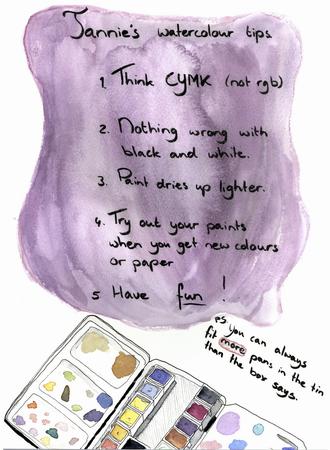 Jannie's watercolour tips
1. Think CYMK (not rgb)
2. Nothing wrong with
black and white.
3. Paint dries up lighter.
4. Try out your paints
when you get new colours
or paper
5 Have fun!
ps. you can always
fit more pans in the tin
than the box says.